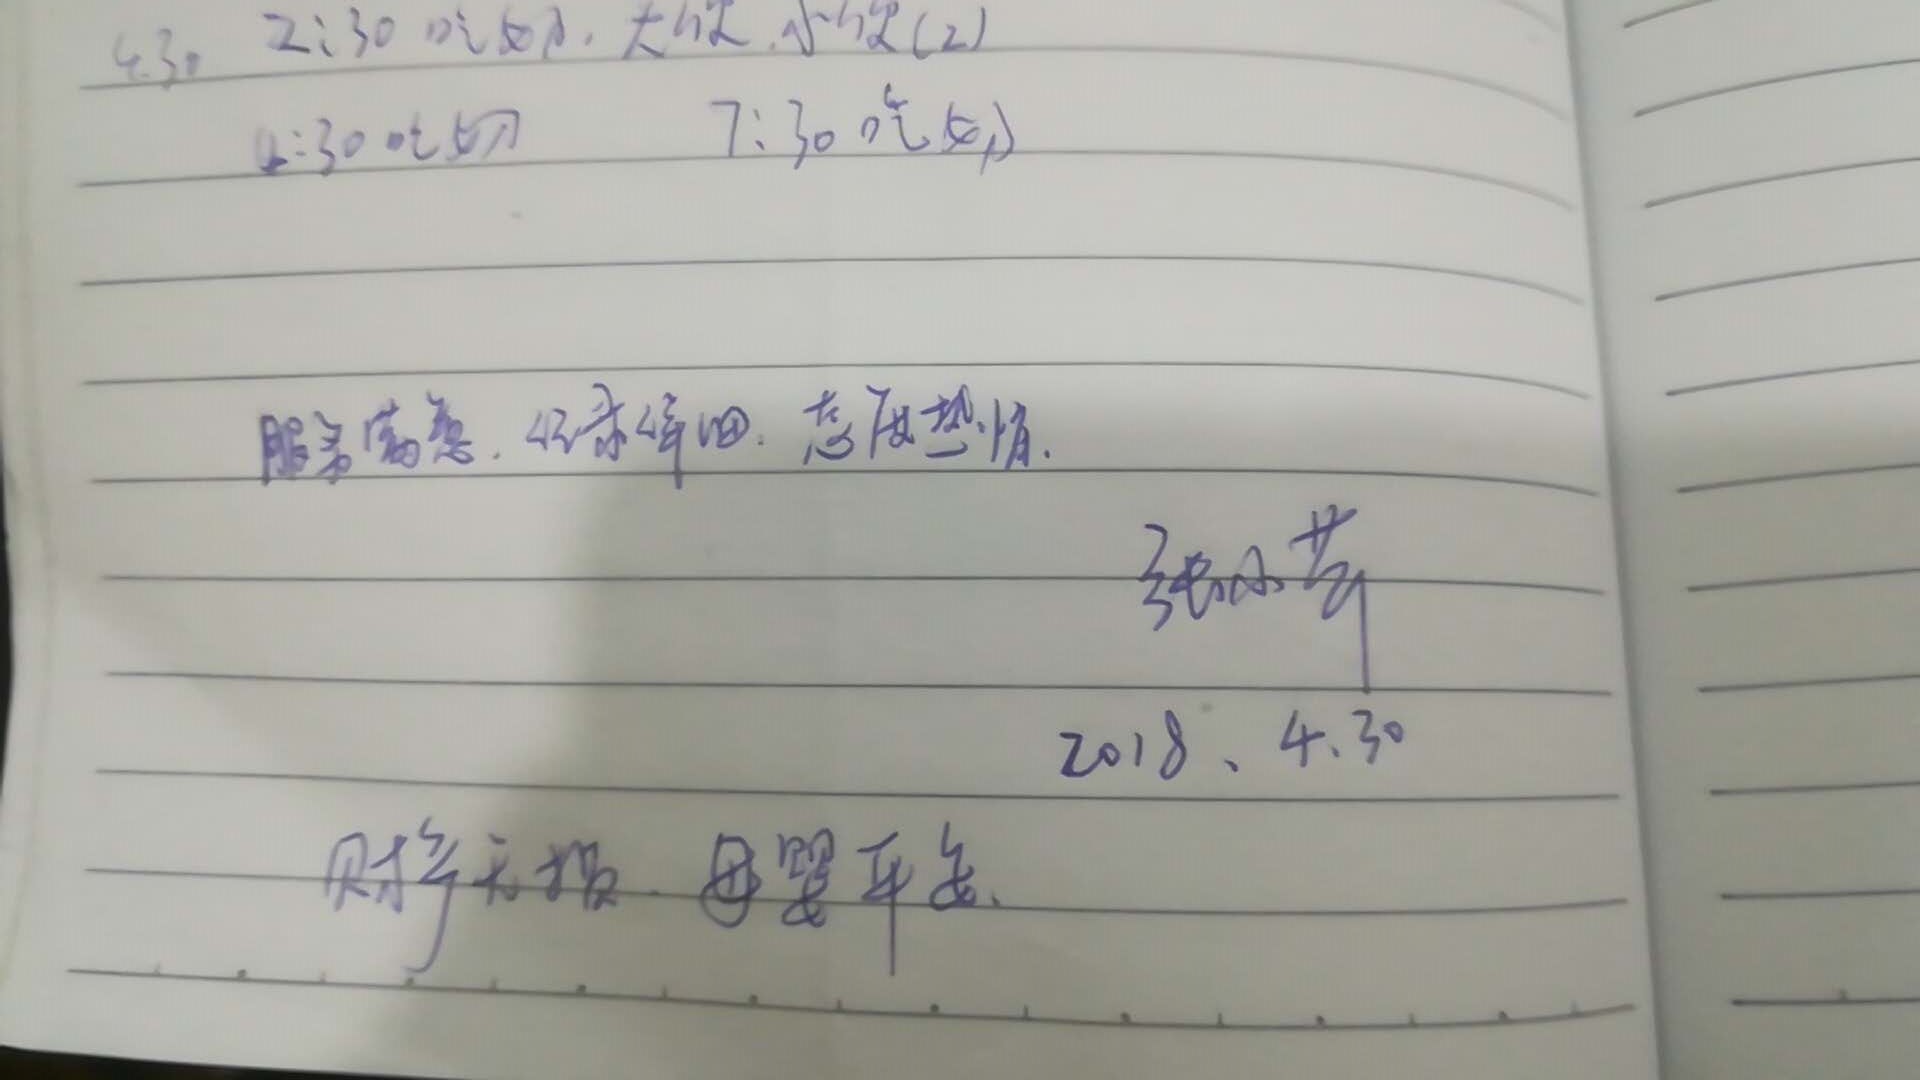 4.30 2:30吃奶、大便、小便(2)
4:30吃奶 7:30吃奶
服务满意、记录详细、态度热情.
张小芳
2018、4.30
财务无损、母婴平安、